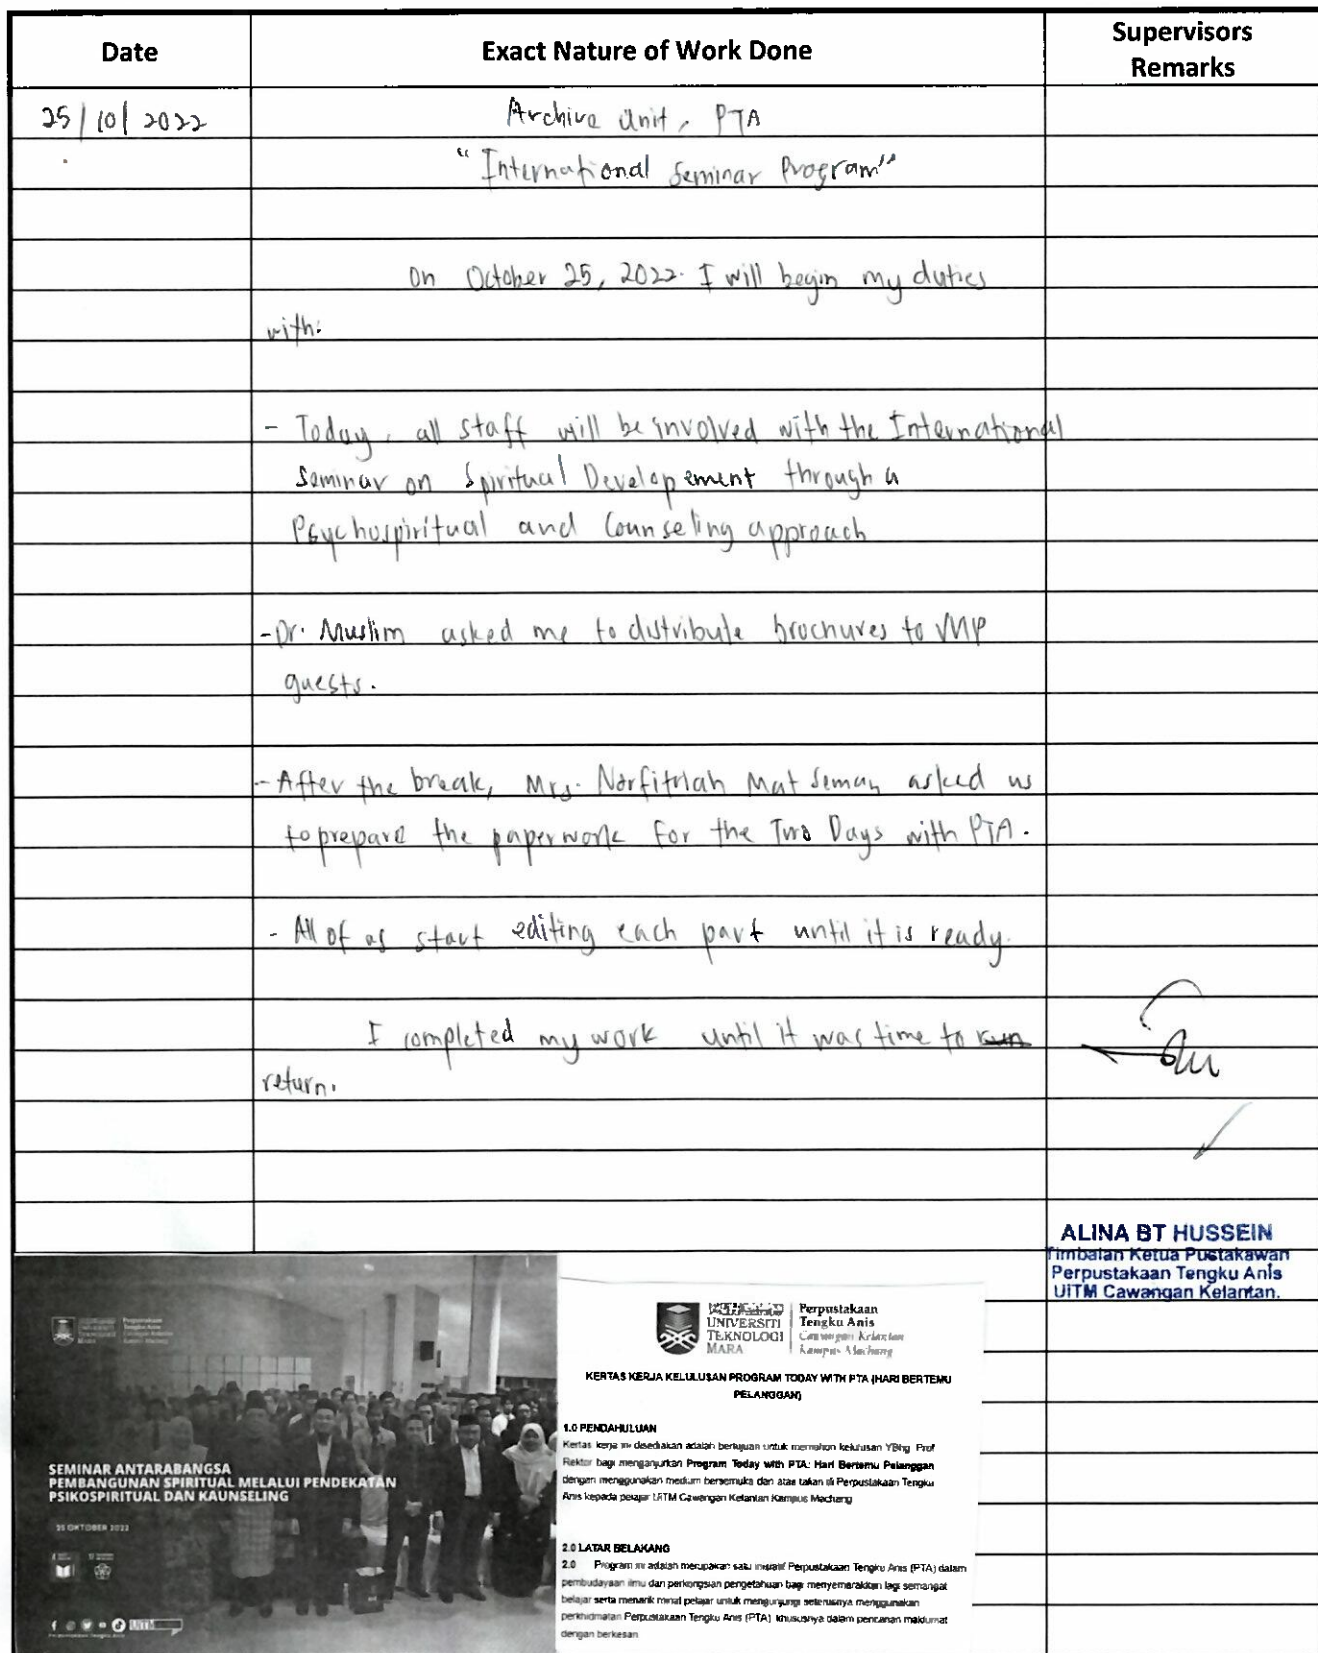 Date
Exact Nature of Work Done
Supervisors
Remarks
25/10/2022
Archive Unit, PTA
"International Seminar Program"
On October 25, 2022. I will begin my duties
with:
- Today, all staff will be involved with the International
Seminar on Spiritual Developement through a
Psychospiritual and Counseling approach
- Dr. Muslim asked me to distribute brochures to
guests.
- After the break, Mrs. Norfitriah Mat Seman asked us
to prepare the paperwork for the Two Days with PTA.
- All of as start editing each part until it is ready.
I completed my work until it was time to
return.
ALINA BT HUSSEIN
Timbalan Ketua Pustakawan
Perpustakaan Tengku Anis
UiTM Cawangan Kelantan.
UNIVERSITI
TEKNOLOGI
MARA
Perpustakaan
Tengku Anis
Cawangan Kelantan
Kampus Machang
SEMINAR ANTARABANGSA
PEMBANGUNAN SPIRITUAL MELALUI PENDEKATAN
PSIKOSPIRITUAL DAN KAUNSELING
25 OKTOBER 2022
UNIVERSITI
TEKNOLOGI
MARA
Perpustakaan
Tengku Anis
Cawangan Kelantan
Kampus Machang
KERTAS KERJA KELULUSAN PROGRAM TODAY WITH PTA (HARI BERTEMU
PELANGGAN)
1.0 PENDAHULUAN
Kertas kerja ini disediakan adalah bertujuan untuk memohon kelulusan YBhg Prof
Rektor bagi menganjurkan Program Today with PTA: Hari Bertemu Pelanggan
dengan menggunakan medium bersemuka dan atas talian di Perpustakaan Tengku
Anis kepada pelajar UiTM Cawangan Kelantan Kampus Machang
2.0 LATAR BELAKANG
2.0 Program ini adalah merupakan satu inisiatif Perpustakaan Tengku Anis (PTA) dalam
pembudayaan ilmu dan perkongsian pengetahuan bagi menyemarakkan lagi semangat
belajar serta menarik minat pelajar untuk mengunjungi seterusnya menggunakan
perkhidmatan Perpustakaan Tengku Anis (PTA) khususnya dalam pencarian maklumat
dengan berkesan